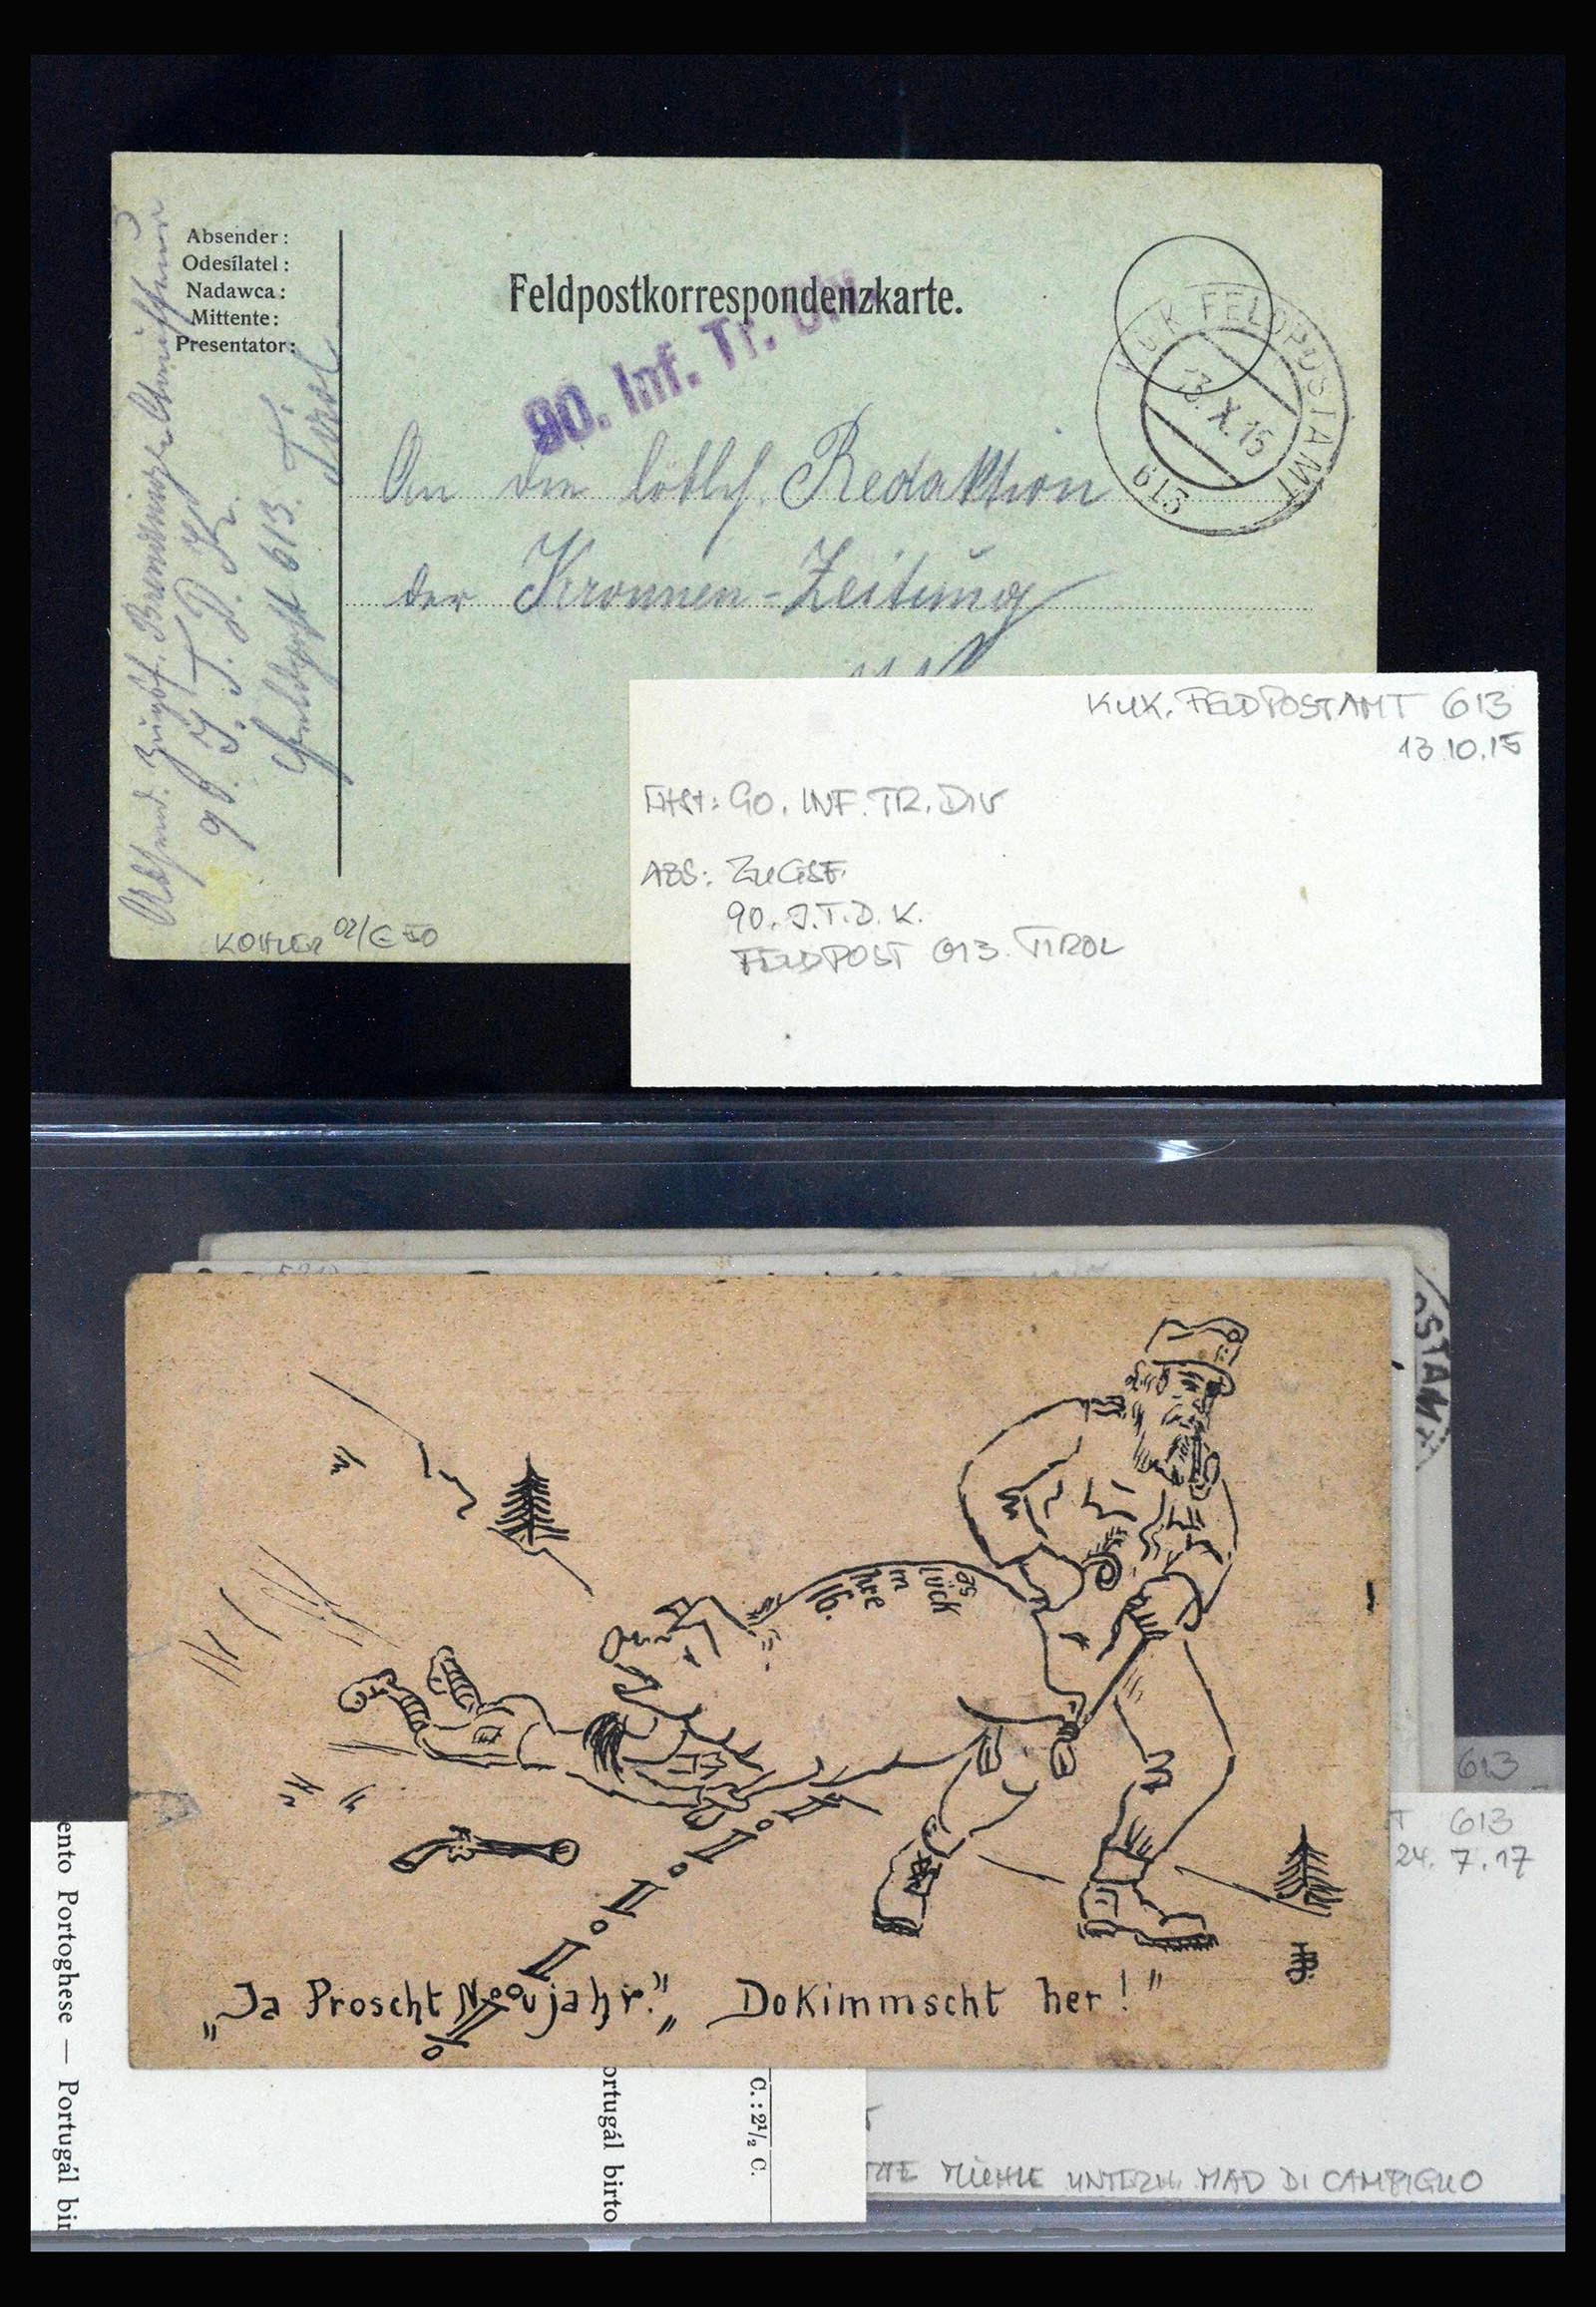 Absender:
Odesílatel:
Nadawca:
Mittente:
Presentator:
Feldpostkorrespondenzkarte.
90. Inf. Tr. Div.
K.u.K. FELDPOSTAMT
13. X. 15
613
An die löbl. Redaktion
der Kronnen-Zeitung
Feldpost 613. Tirol
KOHLER 02/€ 50
KUK. FELDPOSTAMT 613
13.10.15
90. INF. TR. DIV
ABS: ZUGSF.
90. J.T.D.K.
FELDPOST 613. TIROL
OSTAM
613
T 613
24. 7. 17
16.
hre
m
lück
as
„Ja Proscht Neujahr.“ „Do Kimmscht her!“
ento Portoghese — Portugál bir
ortugál birto
C.: 2½ C.
MÜHLE UNTERH. MAD DI CAMPIGLIO